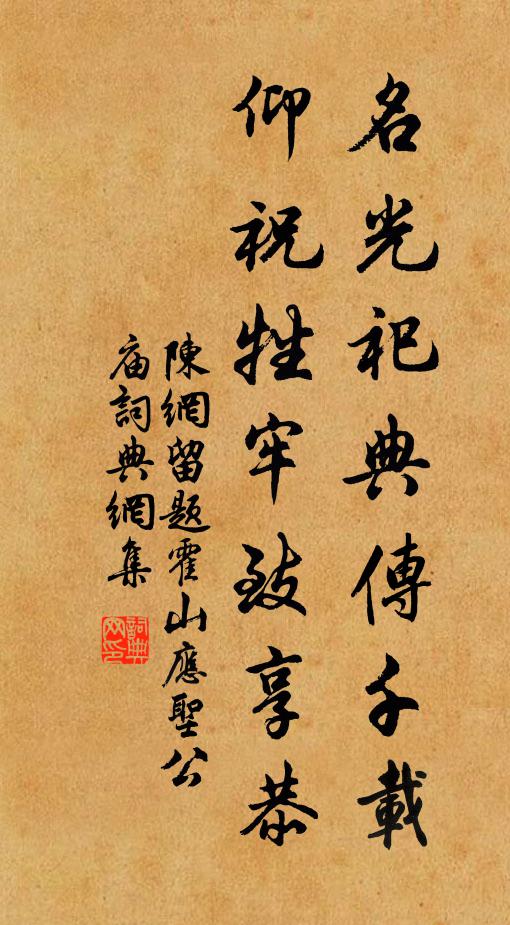 名光祀典傳千載
仰祝牲牢致享恭
陳網留題霍山應聖公
庙詞典網集
詞典
网印